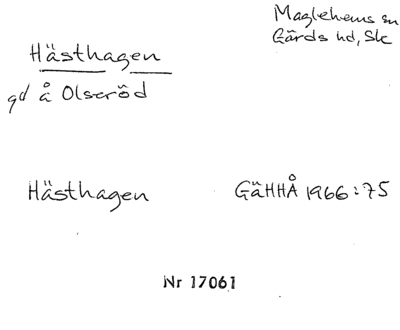 Maglehems sn
Gärds hd, Sk
Hästhagen
gd å Olseröd
Hästhagen GäHHÅ 1966:75
Nr 17061